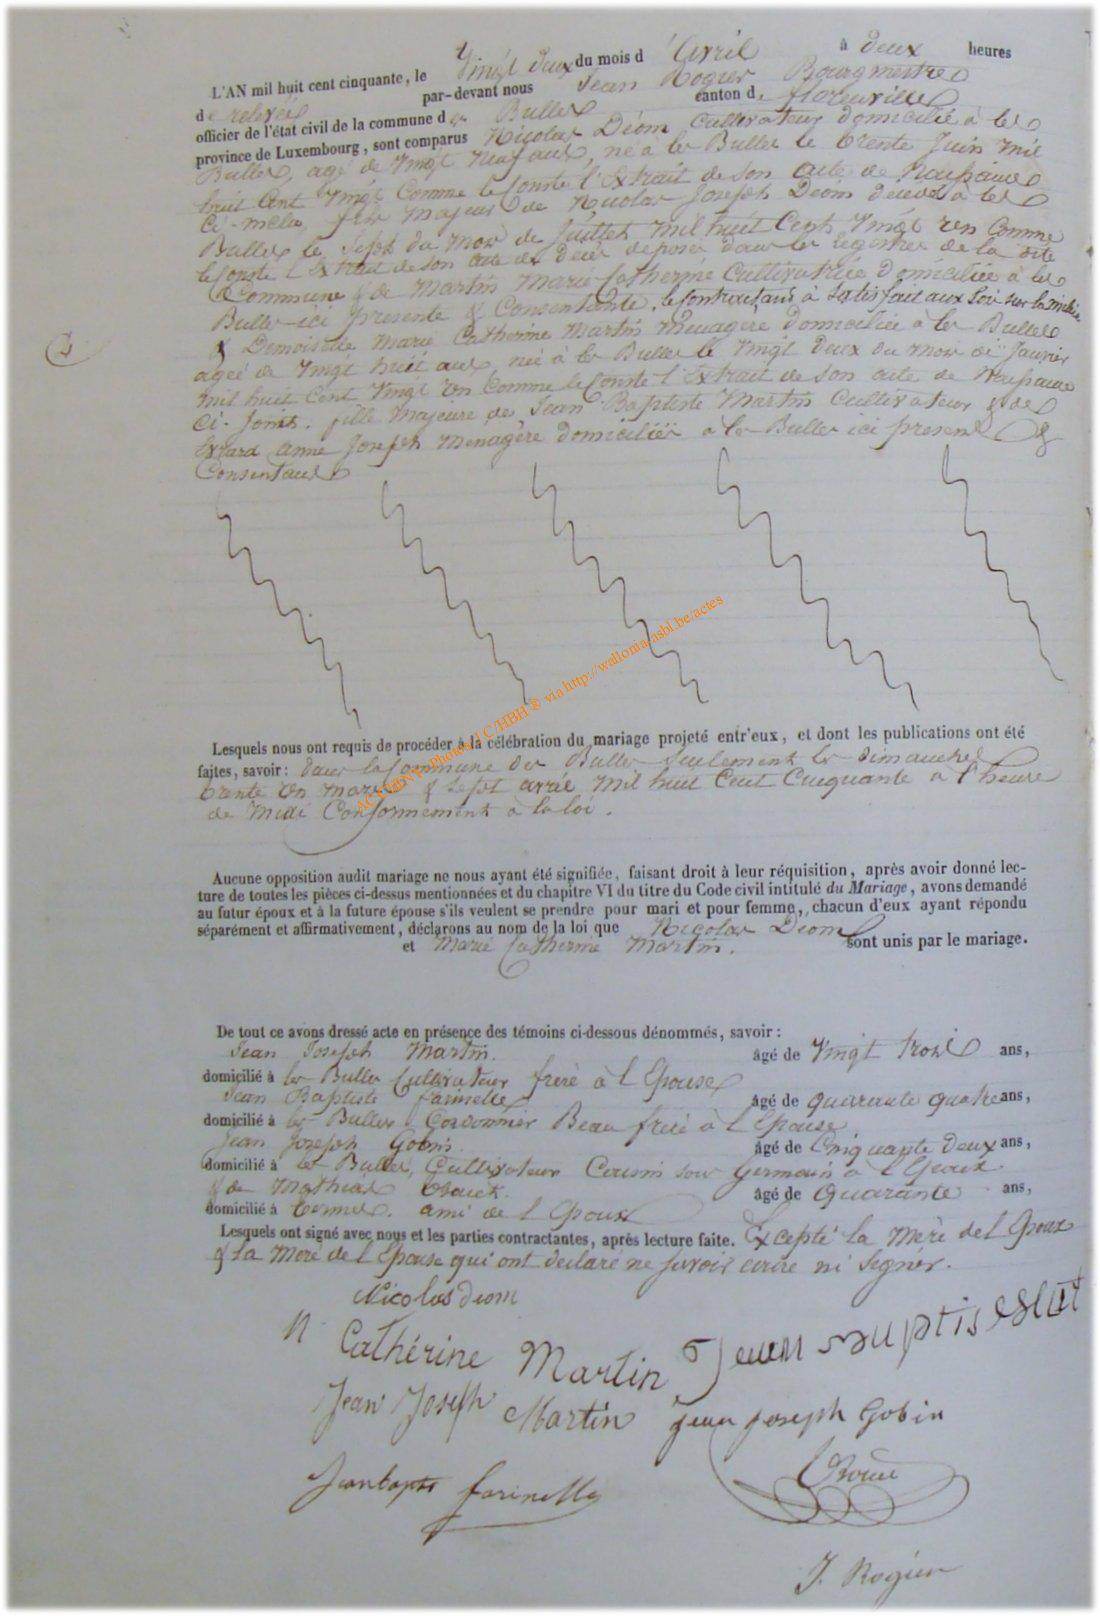 L'AN mil huit cent cinquante, le Vingt deux du mois d'avril à deux heures
de relevée par-devant nous Jean Rogier Bourgmestre
officier de l'état civil de la commune de les Bulles canton de florenville
province de Luxembourg, sont comparus Nicolas Déom Cultivateur domicilié à les
Bulles, agé de Vingt neuf ans, né à les Bulles le trente Juin mil
huit Cent Vingt Comme le Conste l'Extrait de son acte de Naissance
Ci-, fils majeur de Nicolas Joseph Déom décédé à les
Bulles le Sept du mois de Juillet mil huit Cent Vingt en Comme
le Conste l'Extrait de son acte de décès deposé dans les registres de la dite
Commune & de Martin Marie Catherine Cultivatrice domiciliée à les
Bulles ici presente & Consentante, le Contractant à satisfait aux Loi sur la milice
& Demoiselle Marie Catherine Martin Menagère domiciliée à les Bulles
ageé de Vingt huit ans, née à les Bulles le Vingt deux du mois de Janvier
mil huit Cent Vingt en Comme le Conste l'Extrait de son acte de Naissance
Ci-joint. fille majeure de Jean Baptiste Martin Cultivateur & de
anne Joseph Menagère domiciliés à les Bulles ici present &
Consentans
Lesquels nous ont requis de procéder à la célébration du mariage projeté entr'eux, et dont les publications ont été
faites, savoir: dans la Commune des Bulles Seulement les dimanches
trente en mars & Sept avril mil huit Cent Cinquante à l'heure
de Midi Conformement à la loi.
Aucune opposition audit mariage ne nous ayant été signifiée, faisant droit à leur réquisition, après avoir donné lec-
ture de toutes les pièces ci-dessus mentionnées et du chapitre VI du titre du Code civil intitulé du Mariage, avons demandé
au futur époux et à la future épouse s'ils veulent se prendre pour mari et pour femme, chacun d'eux ayant répondu
séparément et affirmativement, déclarons au nom de la loi que Nicolas Déom
et Marie Catherine Martin. sont unis par le mariage.
De tout ce avons dressé acte en présence des témoins ci-dessous dénommés, savoir:
Jean Joseph Martin. âgé de Vingt trois ans,
domicilié à les Bulles Cultivateur frere à l'Epouse
Jean Baptiste farinelle âgé de quarante quatre ans,
domicilié à les Bulles Cordonnier Beau frere à l'Epouse
Jean Joseph Gobin. âgé de Cinquante deux ans,
domicilié à les Bulles, Cultivateur Cousin sous Germain à l'Epoux
& de Mathias âgé de Quarante ans,
domicilié à termes. ami de l'Epoux
Lesquels ont signé avec nous et les parties contractantes, après lecture faite. Excepté la mere de l'Epoux
& la Mere de l'Epouse qui ont declaré ne savoir ecrire ni signer.
Nicolas deom
Catherine Martin
Jean Joseph Martin jean joseph Gobin
Jean bapte farinelle
J. Rogier
ACTDENT Photos/J C/HBH ® via http://wallonia-asbl.be/actes